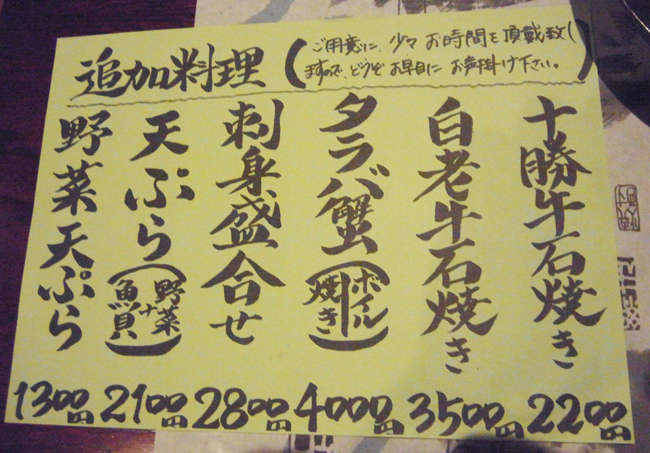 追加料理
(ご用意に、少々お時間を頂戴致し
ますので、どうぞお早目にお声掛け下さい。)
十勝牛石焼き
2200円
白老牛石焼き
3500円
タラバ蟹(ボイル
焼き)
4000円
刺身盛合せ
2800円
天ぷら(野菜
+
魚貝)
2100円
野菜天ぷら
1300円